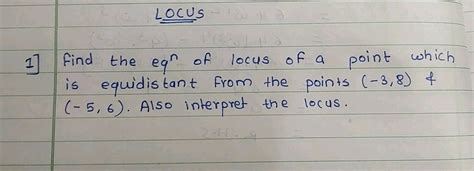 LOCUS
1] Find the eqn of locus of a point which
is equidistant from the points (-3,8) &
(-5,6). Also interpret the locus.